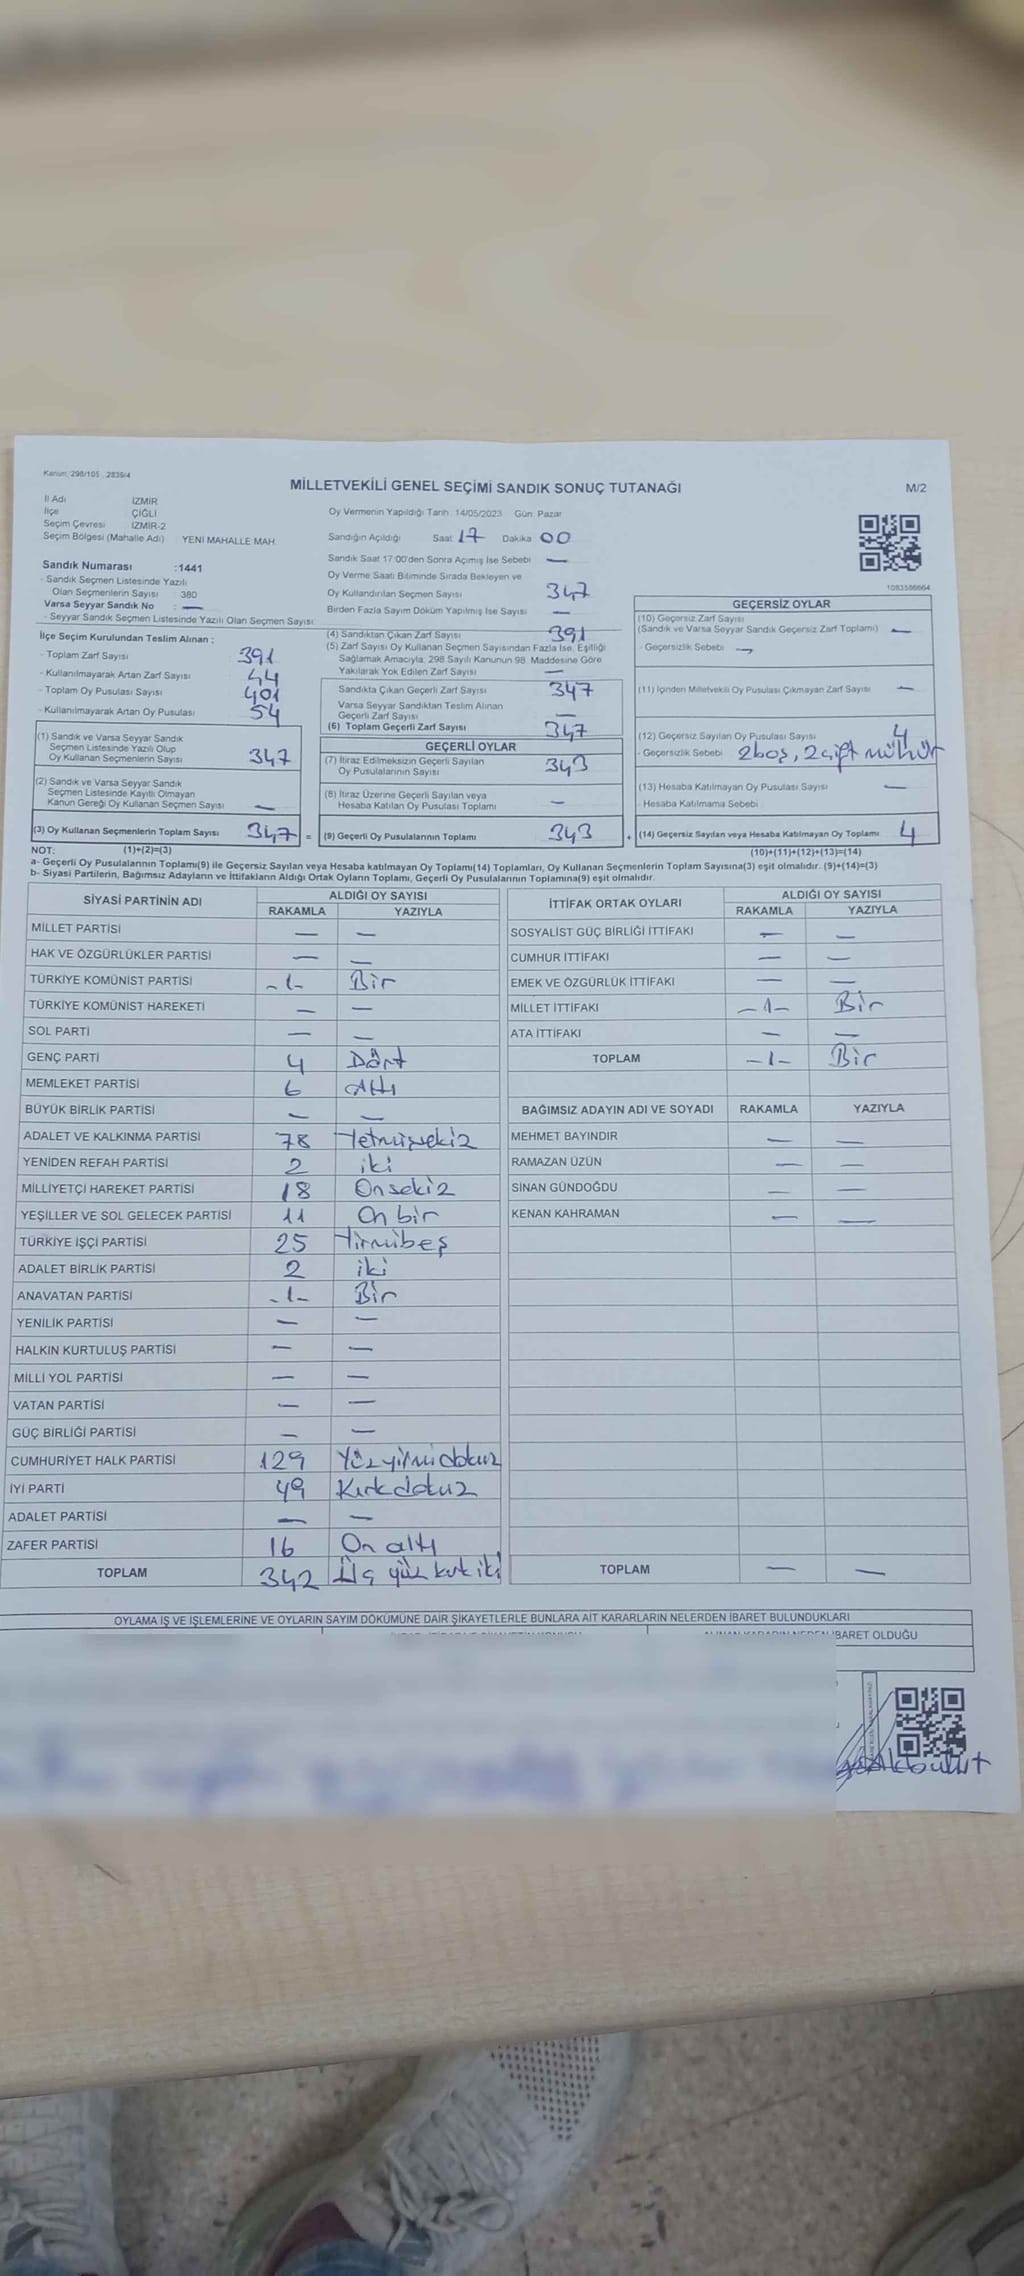 Kanun: 298/105 , 2839/4
MİLLETVEKİLİ GENEL SEÇİMİ SANDIK SONUÇ TUTANAĞI
M/2
İl Adı İZMİR
İlçe ÇİĞLİ
Seçim Çevresi İZMİR-2
Seçim Bölgesi (Mahalle Adı) YENİ MAHALLE MAH.
Oy Vermenin Yapıldığı Tarih :14/05/2023 Gün: Pazar
Sandığın Açıldığı Saat 17 Dakika 00
Sandık Saat 17:00'den Sonra Açımış İse Sebebi —
Oy Verme Saati Bitiminde Sırada Bekleyen ve
Oy Kullandırılan Seçmen Sayısı 347
Birden Fazla Sayım Döküm Yapılmış İse Sayısı —
1083506664
Sandık Numarası :1441
- Sandık Seçmen Listesinde Yazılı
Olan Seçmenlerin Sayısı 380
Varsa Seyyar Sandık No : —
- Seyyar Sandık Seçmen Listesinde Yazılı Olan Seçmen Sayısı:
İlçe Seçim Kurulundan Teslim Alınan :
- Toplam Zarf Sayısı 391
- Kullanılmayarak Artan Zarf Sayısı 44
- Toplam Oy Pusulası Sayısı 401
- Kullanılmayarak Artan Oy Pusulası 54
(1) Sandık ve Varsa Seyyar Sandık
Seçmen Listesinde Yazılı Olup
Oy Kullanan Seçmenlerin Sayısı 347
(2) Sandık ve Varsa Seyyar Sandık
Seçmen Listesinde Kayıtlı Olmayan
Kanun Gereği Oy Kullanan Seçmen Sayısı —
(3) Oy Kullanan Seçmenlerin Toplam Sayısı 347 =
(4) Sandıktan Çıkan Zarf Sayısı 391
(5) Zarf Sayısı Oy Kullanan Seçmen Sayısından Fazla İse, Eşitliği
Sağlamak Amacıyla, 298 Sayılı Kanunun 98. Maddesine Göre
Yakılarak Yok Edilen Zarf Sayısı —
Sandıkta Çıkan Geçerli Zarf Sayısı 347
Varsa Seyyar Sandıktan Teslim Alınan
Geçerli Zarf Sayısı —
(6) Toplam Geçerli Zarf Sayısı 347
GEÇERLİ OYLAR
(7) İtiraz Edilmeksizin Geçerli Sayılan
Oy Pusulalarının Sayısı 343
(8) İtiraz Üzerine Geçerli Sayılan veya
Hesaba Katılan Oy Pusulası Toplamı —
(9) Geçerli Oy Pusulalarının Toplamı 343 +
GEÇERSİZ OYLAR
(10) Geçersiz Zarf Sayısı
(Sandık ve Varsa Seyyar Sandık Geçersiz Zarf Toplamı) —
- Geçersizlik Sebebi —
(11) İçinden Milletvekili Oy Pusulası Çıkmayan Zarf Sayısı —
(12) Geçersiz Sayılan Oy Pusulası Sayısı 4
- Geçersizlik Sebebi 2 boş, 2 çift mühür
(13) Hesaba Katılmayan Oy Pusulası Sayısı —
- Hesaba Katılmama Sebebi
(14) Geçersiz Sayılan veya Hesaba Katılmayan Oy Toplamı 4
NOT: (1)+(2)=(3) (10)+(11)+(12)+(13)=(14)
a- Geçerli Oy Pusulalarının Toplamı(9) ile Geçersiz Sayılan veya Hesaba katılmayan Oy Toplamı(14) Toplamları, Oy Kullanan Seçmenlerin Toplam Sayısına(3) eşit olmalıdır. (9)+(14)=(3)
b- Siyasi Partilerin, Bağımsız Adayların ve İttifakların Aldığı Ortak Oyların Toplamı, Geçerli Oy Pusulalarının Toplamına(9) eşit olmalıdır.
SİYASİ PARTİNİN ADI ALDIĞI OY SAYISI
RAKAMLA YAZIYLA
MİLLET PARTİSİ — —
HAK VE ÖZGÜRLÜKLER PARTİSİ — —
TÜRKİYE KOMÜNİST PARTİSİ -1- Bir
TÜRKİYE KOMÜNİST HAREKETİ — —
SOL PARTİ — —
GENÇ PARTİ 4 Dört
MEMLEKET PARTİSİ 6 Altı
BÜYÜK BİRLİK PARTİSİ — —
ADALET VE KALKINMA PARTİSİ 78 Yetmişsekiz
YENİDEN REFAH PARTİSİ 2 iki
MİLLİYETÇİ HAREKET PARTİSİ 18 Onsekiz
YEŞİLLER VE SOL GELECEK PARTİSİ 11 On bir
TÜRKİYE İŞÇİ PARTİSİ 25 Yirmibeş
ADALET BİRLİK PARTİSİ 2 iki
ANAVATAN PARTİSİ -1- Bir
YENİLİK PARTİSİ — —
HALKIN KURTULUŞ PARTİSİ — —
MİLLİ YOL PARTİSİ — —
VATAN PARTİSİ — —
GÜÇ BİRLİĞİ PARTİSİ — —
CUMHURİYET HALK PARTİSİ 129 Yüzyirmidokuz
İYİ PARTİ 49 Kırkdokuz
ADALET PARTİSİ — —
ZAFER PARTİSİ 16 On altı
TOPLAM 342 Üç yüz kırk iki
İTTİFAK ORTAK OYLARI ALDIĞI OY SAYISI
RAKAMLA YAZIYLA
SOSYALİST GÜÇ BİRLİĞİ İTTİFAKI — —
CUMHUR İTTİFAKI — —
EMEK VE ÖZGÜRLÜK İTTİFAKI — —
MİLLET İTTİFAKI -1- Bir
ATA İTTİFAKI — —
TOPLAM -1- Bir
BAĞIMSIZ ADAYIN ADI VE SOYADI RAKAMLA YAZIYLA
MEHMET BAYINDIR — —
RAMAZAN ÜZÜN — —
SİNAN GÜNDOĞDU — —
KENAN KAHRAMAN — —
TOPLAM — —
OYLAMA İŞ VE İŞLEMLERİNE VE OYLARIN SAYIM DÖKÜMÜNE DAİR ŞİKAYETLERLE BUNLARA AİT KARARLARIN NELERDEN İBARET BULUNDUKLARI
ALINAN KARARIN NEDEN İBARET OLDUĞU
Akbulut